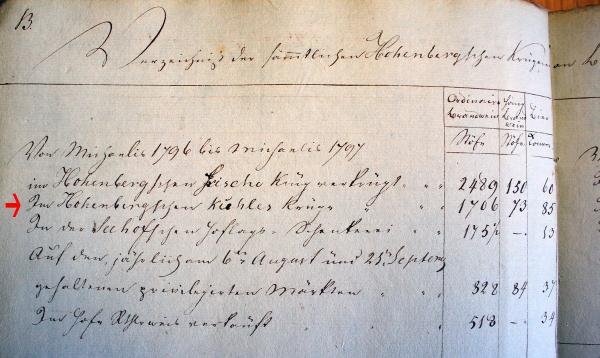 13.
Verzeichniß der sämmtlichen Hohenbergschen Krügen an
Ordinaire Brandwein Bier
Stöfe Stöfe Tonnen
Von Michaelis 1796 bis Michaelis 1797
im Hohenbergschen Krug verkrügt 2489 150 60
Im Hohenbergschen Krüge 1706 73 85
In der Seehofschen Hoflags-Schenkerei 175 13
Auf den, jährlich am 6ten August und 25ten Septem
gehaltenen privilegirten Märkten 828 84 37
Im Hofe verkauft 518 34